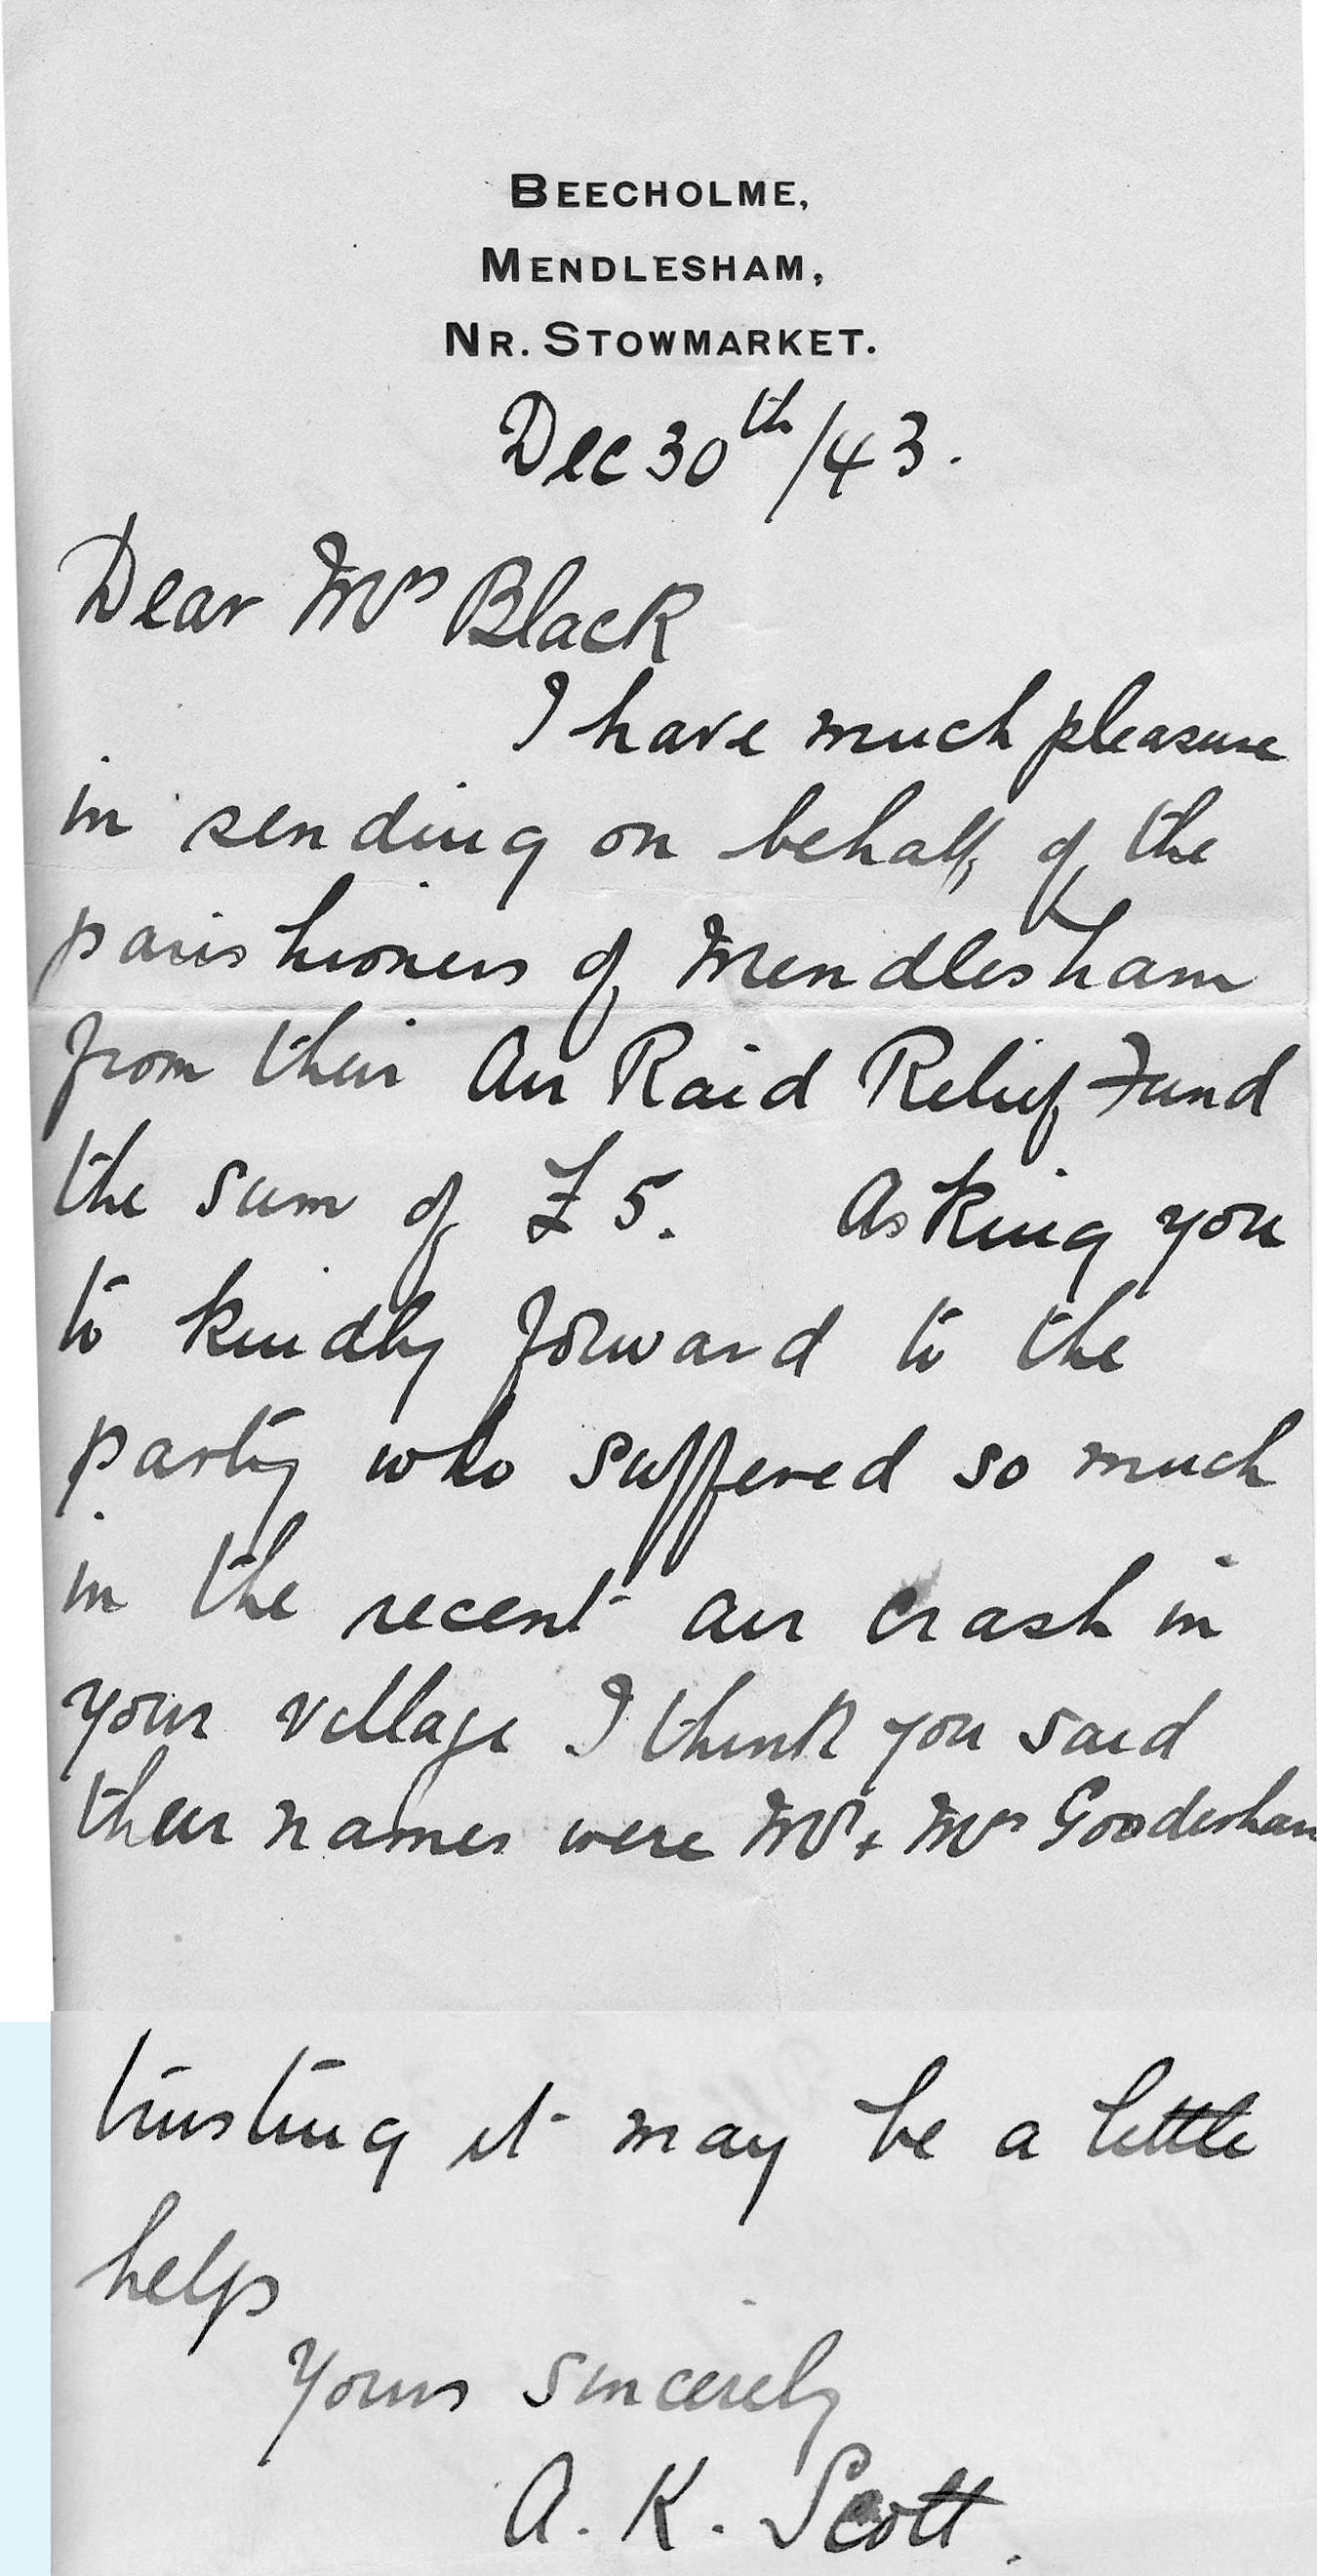 BEECHOLME,
MENDLESHAM,
NR. STOWMARKET.
Dec 30th/43.
Dear Mrs Black
I have much pleasure
in sending on behalf of the
parishioners of Mendlesham
from their Air Raid Relief Fund
the sum of £5. Asking you
to kindly forward to the
party who suffered so much
in the recent air crash in
your village I think you said
their names were Mr + Mrs Goodesham
trusting it may be a little
help
Yours sincerely
A. K. Scott.